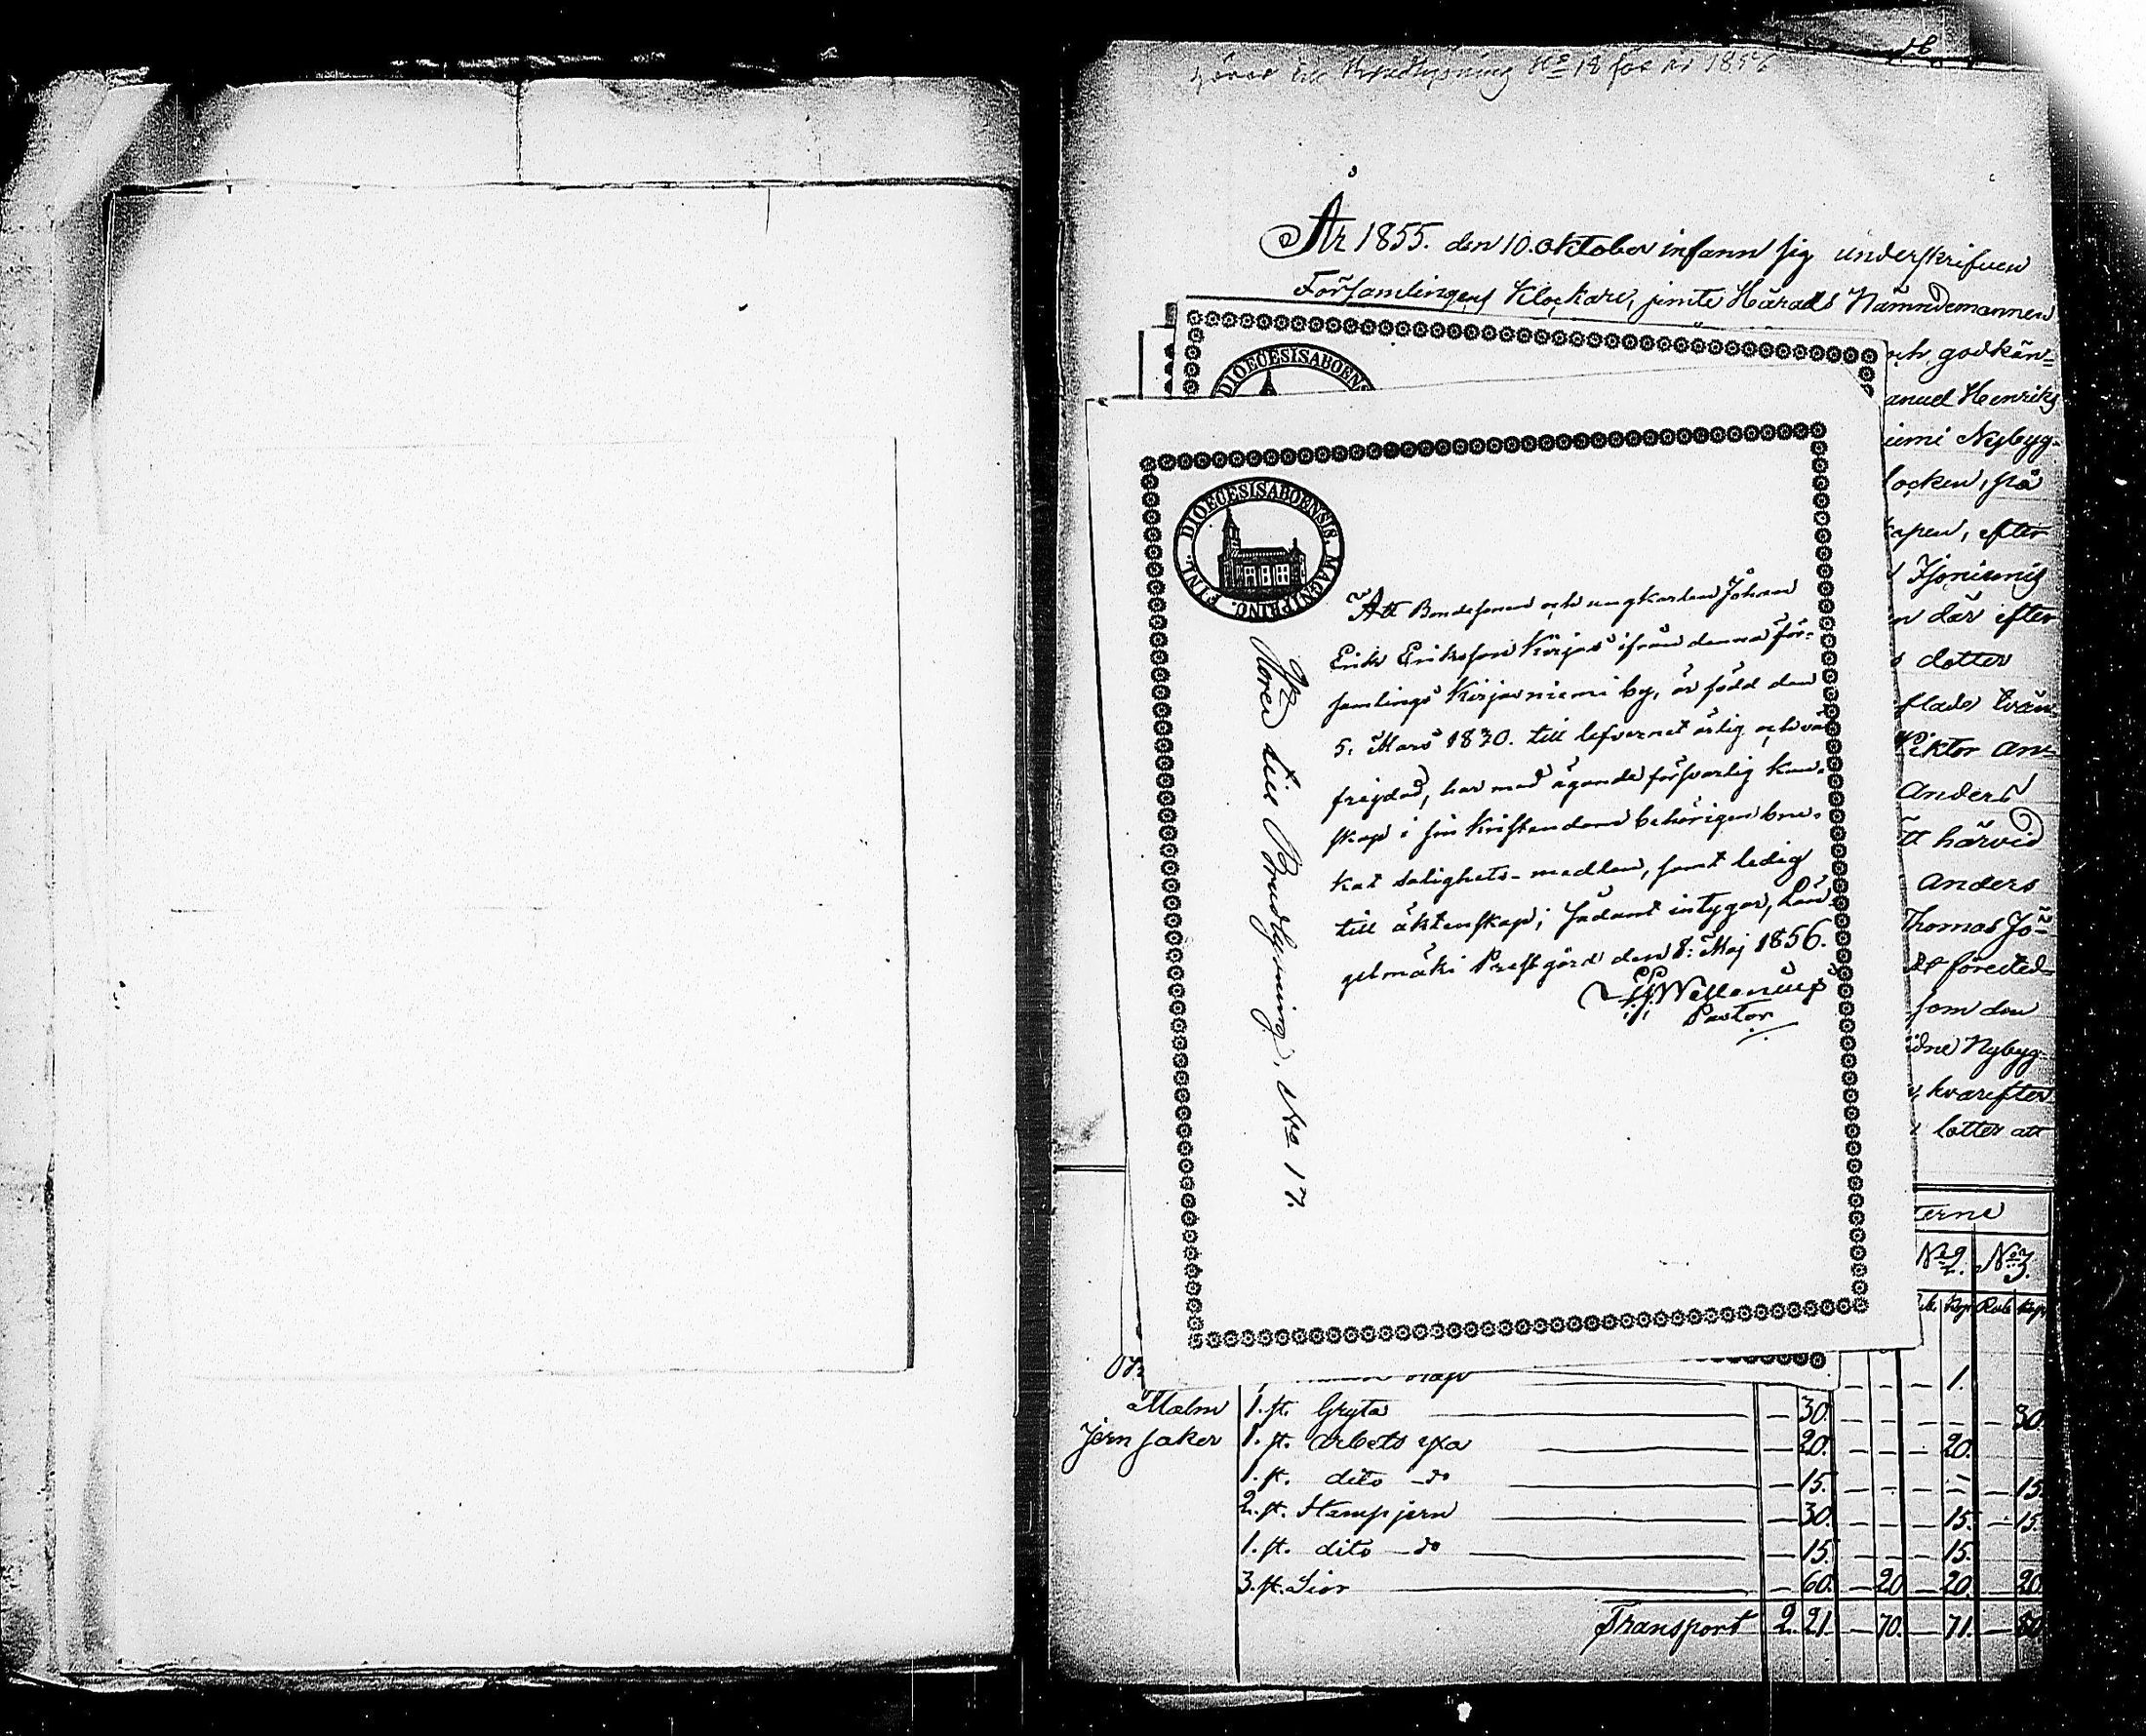 hörer till Brudlysning No 18 för år 1856
År 1855. den 10. oktober infann sig underskrifven
Församlingens Klockare, jemte Härads Nämndemannen
och godkän-
anuel Henriks
iemi Nybyg-
locken, på
kapen, efter
n där efter
dotter
Viktor An-
Anders
tt härvid
Anders
Thomas Jo-
som den
idne Nybyg-
hvarefter
lotter att
DIOECESIS ABOENS
DIOECESIS ABOENSIS. MAGNI PRINC. FINL.
Att Bondesonen och ungkarlen Johan
Erik Eriksson Kirjas ifrån denna för-
samlings Kirjasniemi by, är född den
5. Mars 1830. till lefvernet ärlig och väl
frejdad, har med ägande försvarlig kun-
skap i sin kristendom behörigen bru-
kat salighets-medlen, samt ledig
till äktenskap; sådant intygar, Län-
gelmäki Prestgård den 8. Maj 1856.
Pastor
Hörer till Brudlysning, No 17.
terne
No 2. No 3.
Kop Rub Kop
1.
Malm 1. st. Gryta — 30. — — — — 30.
Jern saker 1. st. Arbets yxa — 20. — — — 20.
1. st. dito do — 15. — — — — 15.
2. st. Stamp jern — 30. — — — 15. — 15.
1. st. dito do — 15. — — — 15.
3. st. Lior — 60. — 20 — 20. — 20.
Transport 2. 21. — 70. — 71. — 80